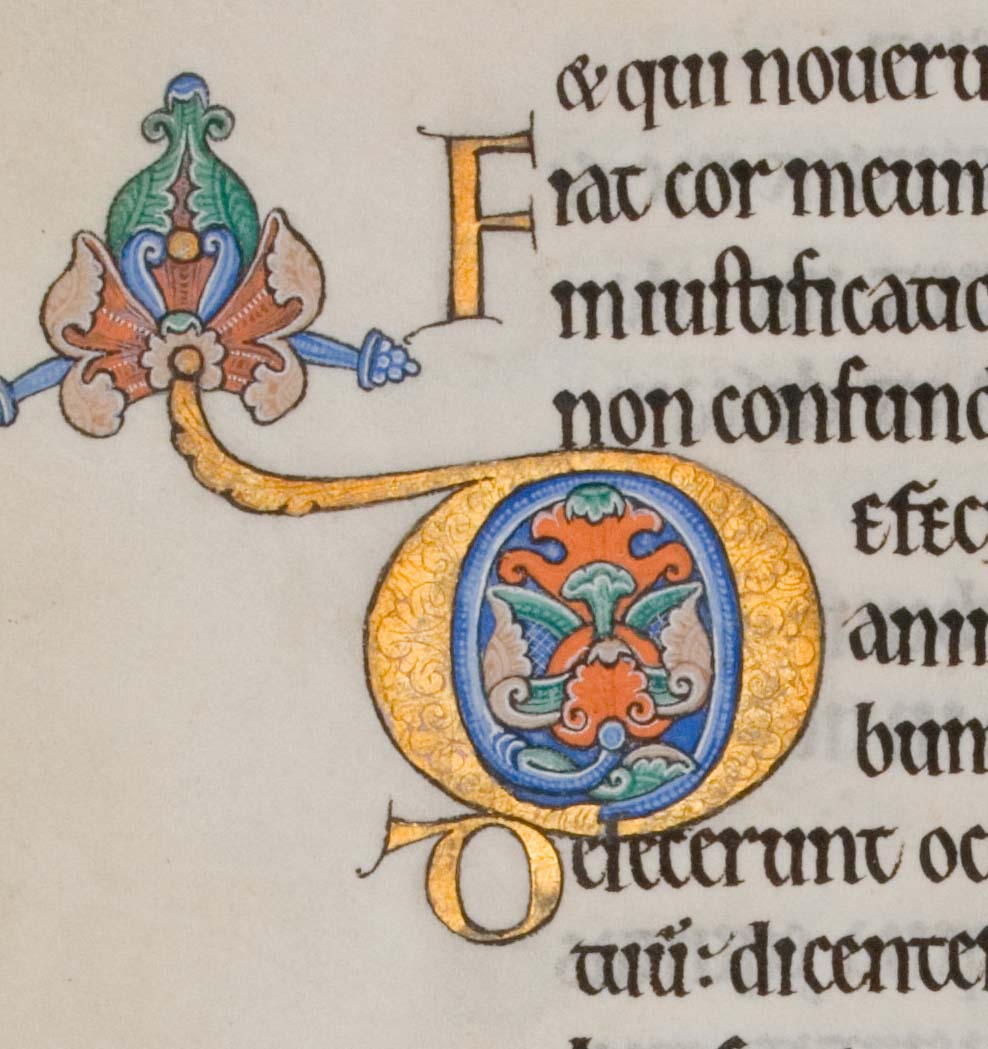 & qui noueru
Fiat cor meum
in iustificatio
non confund
DEFEC
anim
bum
Defecerunt oc
tuū: dicentes